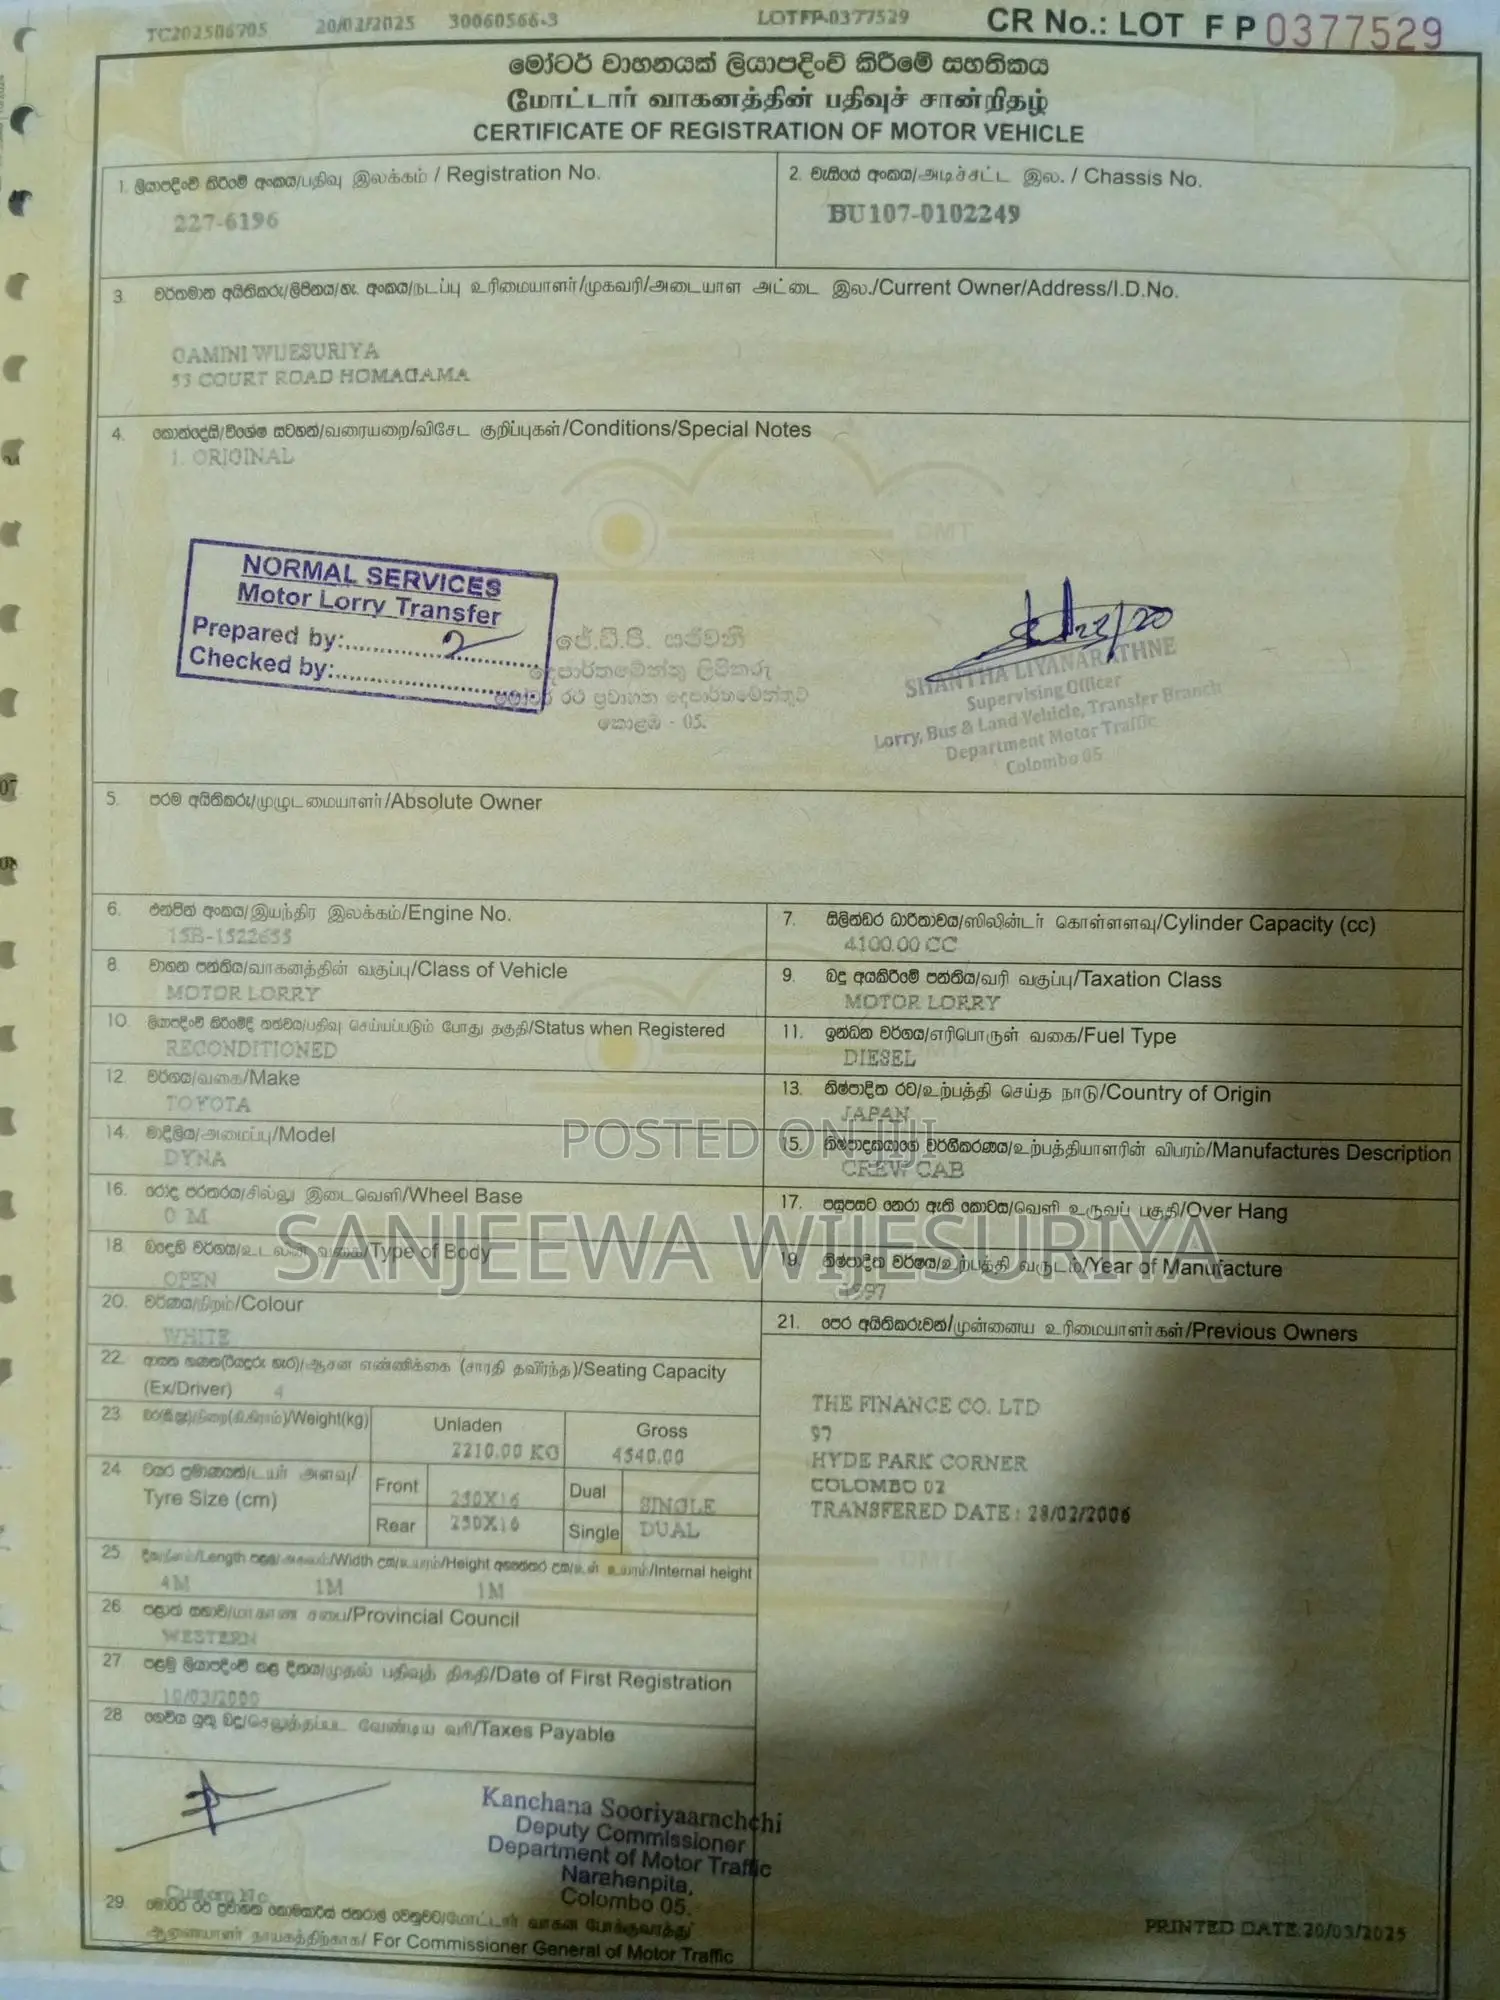 TC202506705 20/02/2025 30060566-3 LOTFP-0377529 CR No.: LOT F P 0377529
මෝටර් වාහනයක් ලියාපදිංචි කිරීමේ සහතිකය
மோட்டார் வாகனத்தின் பதிவுச் சான்றிதழ்
CERTIFICATE OF REGISTRATION OF MOTOR VEHICLE
1. ලියාපදිංචි කිරීමේ අංකය/பதிவு இலக்கம் / Registration No.
227-6196
2. චැසියේ අංකය/அடிச்சட்ட இல. / Chassis No.
BU107-0102249
3. වර්තමාන අයිතිකරු/ලිපිනය/හැ. අංකය/நடப்பு உரிமையாளர்/முகவரி/அடையாள அட்டை இல./Current Owner/Address/I.D.No.
GAMINI WIJESURIYA
53 COURT ROAD HOMAGAMA
4. කොන්දේසි/විශේෂ සටහන්/வரையறை/விசேட குறிப்புகள்/Conditions/Special Notes
1. ORIGINAL
NORMAL SERVICES
Motor Lorry Transfer
Prepared by:
Checked by:
ජේ.ඩී.පී. සජීවනී
දෙපාර්තමේන්තු ලිපිකරු
මෝටර් රථ ප්‍රවාහන දෙපාර්තමේන්තුව
කොළඹ - 05.
SHANTHA LIYANARATHNE
Supervising Officer
Lorry, Bus & Land Vehicle, Transfer Branch
Department Motor Traffic
Colombo 05
5. පරම අයිතිකරු/முழுடமையாளர்/Absolute Owner
6. එන්ජින් අංකය/இயந்திர இலக்கம்/Engine No.
15B-1522655
7. සිලින්ඩර ධාරිතාවය/ஸிலிண்டர் கொள்ளளவு/Cylinder Capacity (cc)
4100.00 CC
8. වාහන පන්තිය/வாகனத்தின் வகுப்பு/Class of Vehicle
MOTOR LORRY
9. බදු අයකිරීමේ පන්තිය/வரி வகுப்பு/Taxation Class
MOTOR LORRY
10. ලියාපදිංචි කිරීමේදී තත්වය/பதிவு செய்யப்படும் போது தகுதி/Status when Registered
RECONDITIONED
11. ඉන්ධන වර්ගය/எரிபொருள் வகை/Fuel Type
DIESEL
12. වර්ගය/வகை/Make
TOYOTA
13. නිෂ්පාදිත රට/உற்பத்தி செய்த நாடு/Country of Origin
JAPAN
14. මාදිලිය/அமைப்பு/Model
DYNA
15. නිෂ්පාදකයාගේ වර්ගීකරණය/உற்பத்தியாளரின் விபரம்/Manufactures Description
CREW CAB
POSTED ON JIJI
16. රෝද පරතරය/சில்லு இடைவெளி/Wheel Base
0 M
17. පසුපසට නෙරා ඇති කොටස/வெளி உருவப் பகுதி/Over Hang
SANJEEWA WIJESURIYA
18. බඳෙහි වර්ගය/உடலின் வகை/Type of Body
OPEN
19. නිෂ්පාදිත වර්ෂය/உற்பத்தி வருடம்/Year of Manufacture
1997
20. වර්ණය/நிறம்/Colour
WHITE
21. පෙර අයිතිකරුවන්/முன்னைய உரிமையாளர்கள்/Previous Owners
THE FINANCE CO. LTD
97
HYDE PARK CORNER
COLOMBO 02
TRANSFERED DATE : 28/02/2006
22. ආසන ගණන(රියදුරු හැර)/ஆசன எண்ணிக்கை (சாரதி தவிர்ந்த)/Seating Capacity
(Ex/Driver) 4
23. බර(කි.ග්‍රෑ)/நிறை(கி.கிராம்)/Weight(kg) Unladen Gross
2210.00 KG 4540.00
24 ටයර ප්‍රමාණයන්/டயர் அளவு/
Tyre Size (cm)
Front 250X16 Dual SINGLE
Rear 250X16 Single DUAL
25 /Length /Width /Height /Internal height
4M 1M 1M
26 පළාත් සභාව/மாகாண சபை/Provincial Council
WESTERN
27 පළමු ලියාපදිංචි කළ දිනය/முதல் பதிவுத் திகதி/Date of First Registration
10/03/2000
28 ගෙවිය යුතු බදු/செலுத்தப்பட வேண்டிய வரி/Taxes Payable
Kanchana Sooriyaarachchi
Deputy Commissioner
Department of Motor Traffic
Narahenpita,
Colombo 05.
Custom No
29. මෝටර් රථ ප්‍රවාහන කොමසාරිස් ජනරාල් වෙනුවට/மோட்டார் வாகன போக்குவரத்து
ஆணையாளர் நாயகத்திற்காக/ For Commissioner General of Motor Traffic
PRINTED DATE:20/03/2025